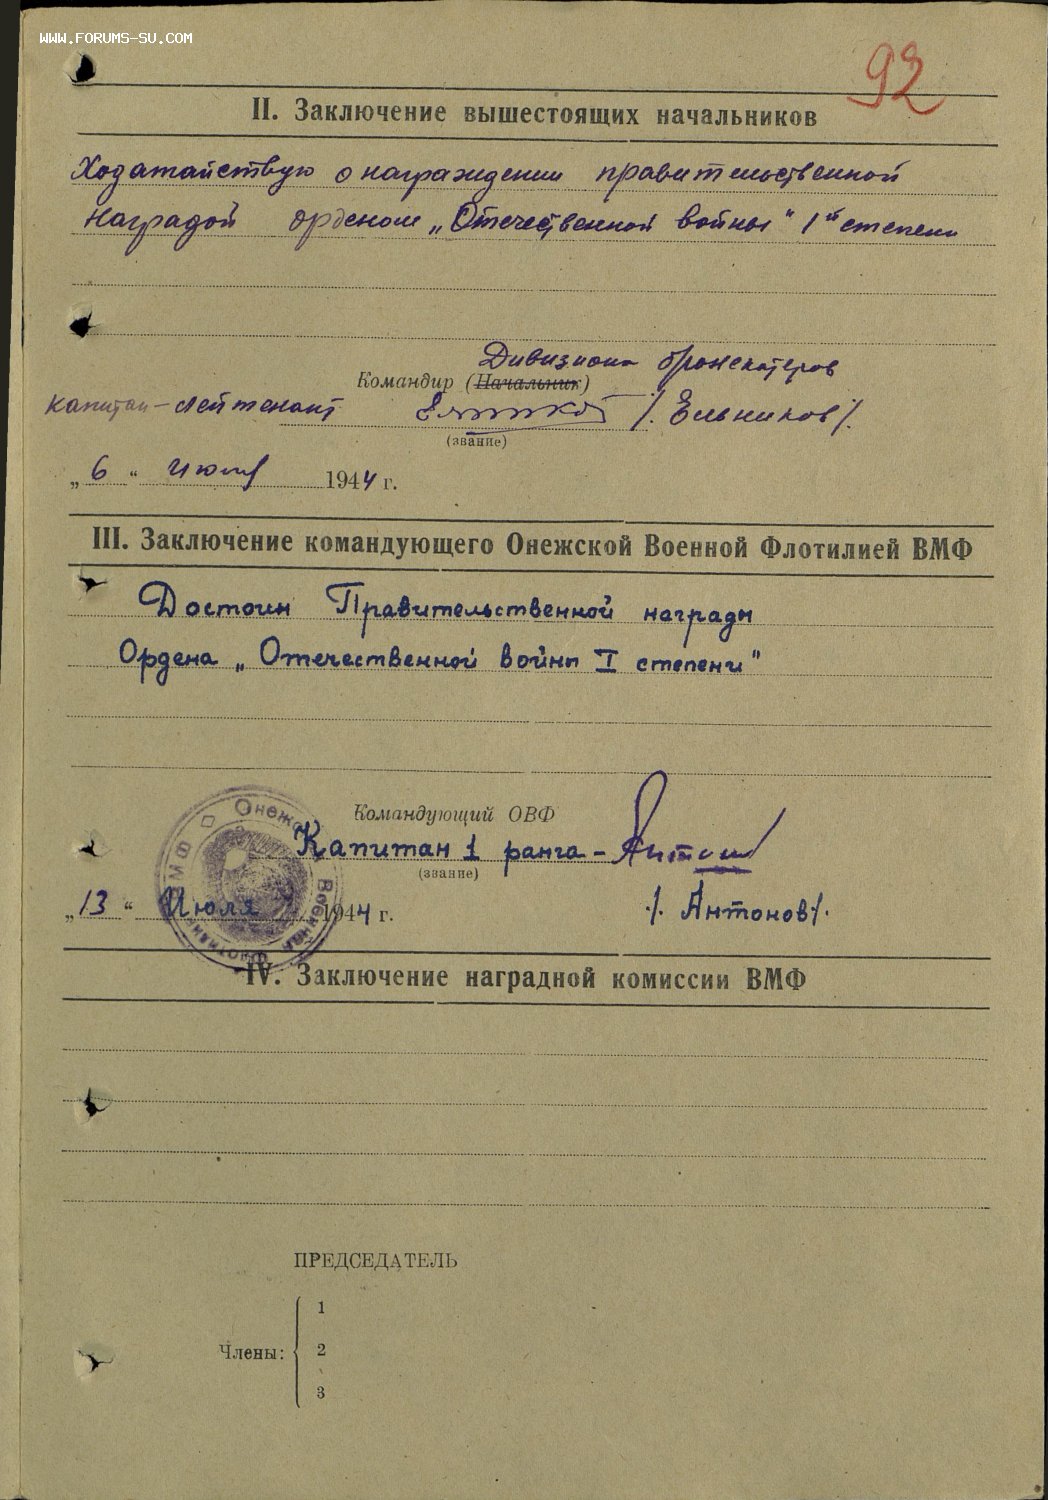 WWW.FORUMS-SU.COM
92
II. Заключение вышестоящих начальников
Ходатайствую о награждении правительственной
наградой орденом „Отечественной войны" 1й степени
Дивизиона бронекатеров
Командир (Начальник)
капитан-лейтенант /. Ельников /.
(звание)
„6" июля 1944 г.
III. Заключение командующего Онежской Военной Флотилией ВМФ
Достоин Правительственной награды
Ордена „Отечественной войны I степени"
Командующий ОВФ
Капитан 1 ранга -
(звание)
„13" Июля 1944 г. /. Антонов/.
Военная Флотилия ВМФ
IV. Заключение наградной комиссии ВМФ
ПРЕДСЕДАТЕЛЬ
1
Члены: 2
3